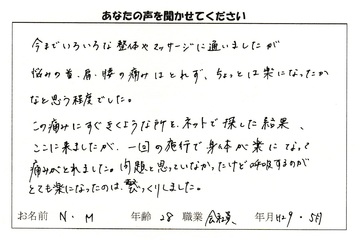 あなたの声を聞かせてください
今までいろいろな整体やマッサージに通いましたが
悩みの首、肩、腰の痛みはとれず、ちょっとは楽になったか
なと思う程度でした。
この痛みにすぐきくような所を、ネットで探した結果、
ここに来ましたが、一回の施行で身体が楽になって
痛みがとれました。問題と思っていなかったけど呼吸するのが
とても楽になったのは、驚っくりしました。
お名前 N・M 年齢 28 職業 会社員 年月 H29・5月